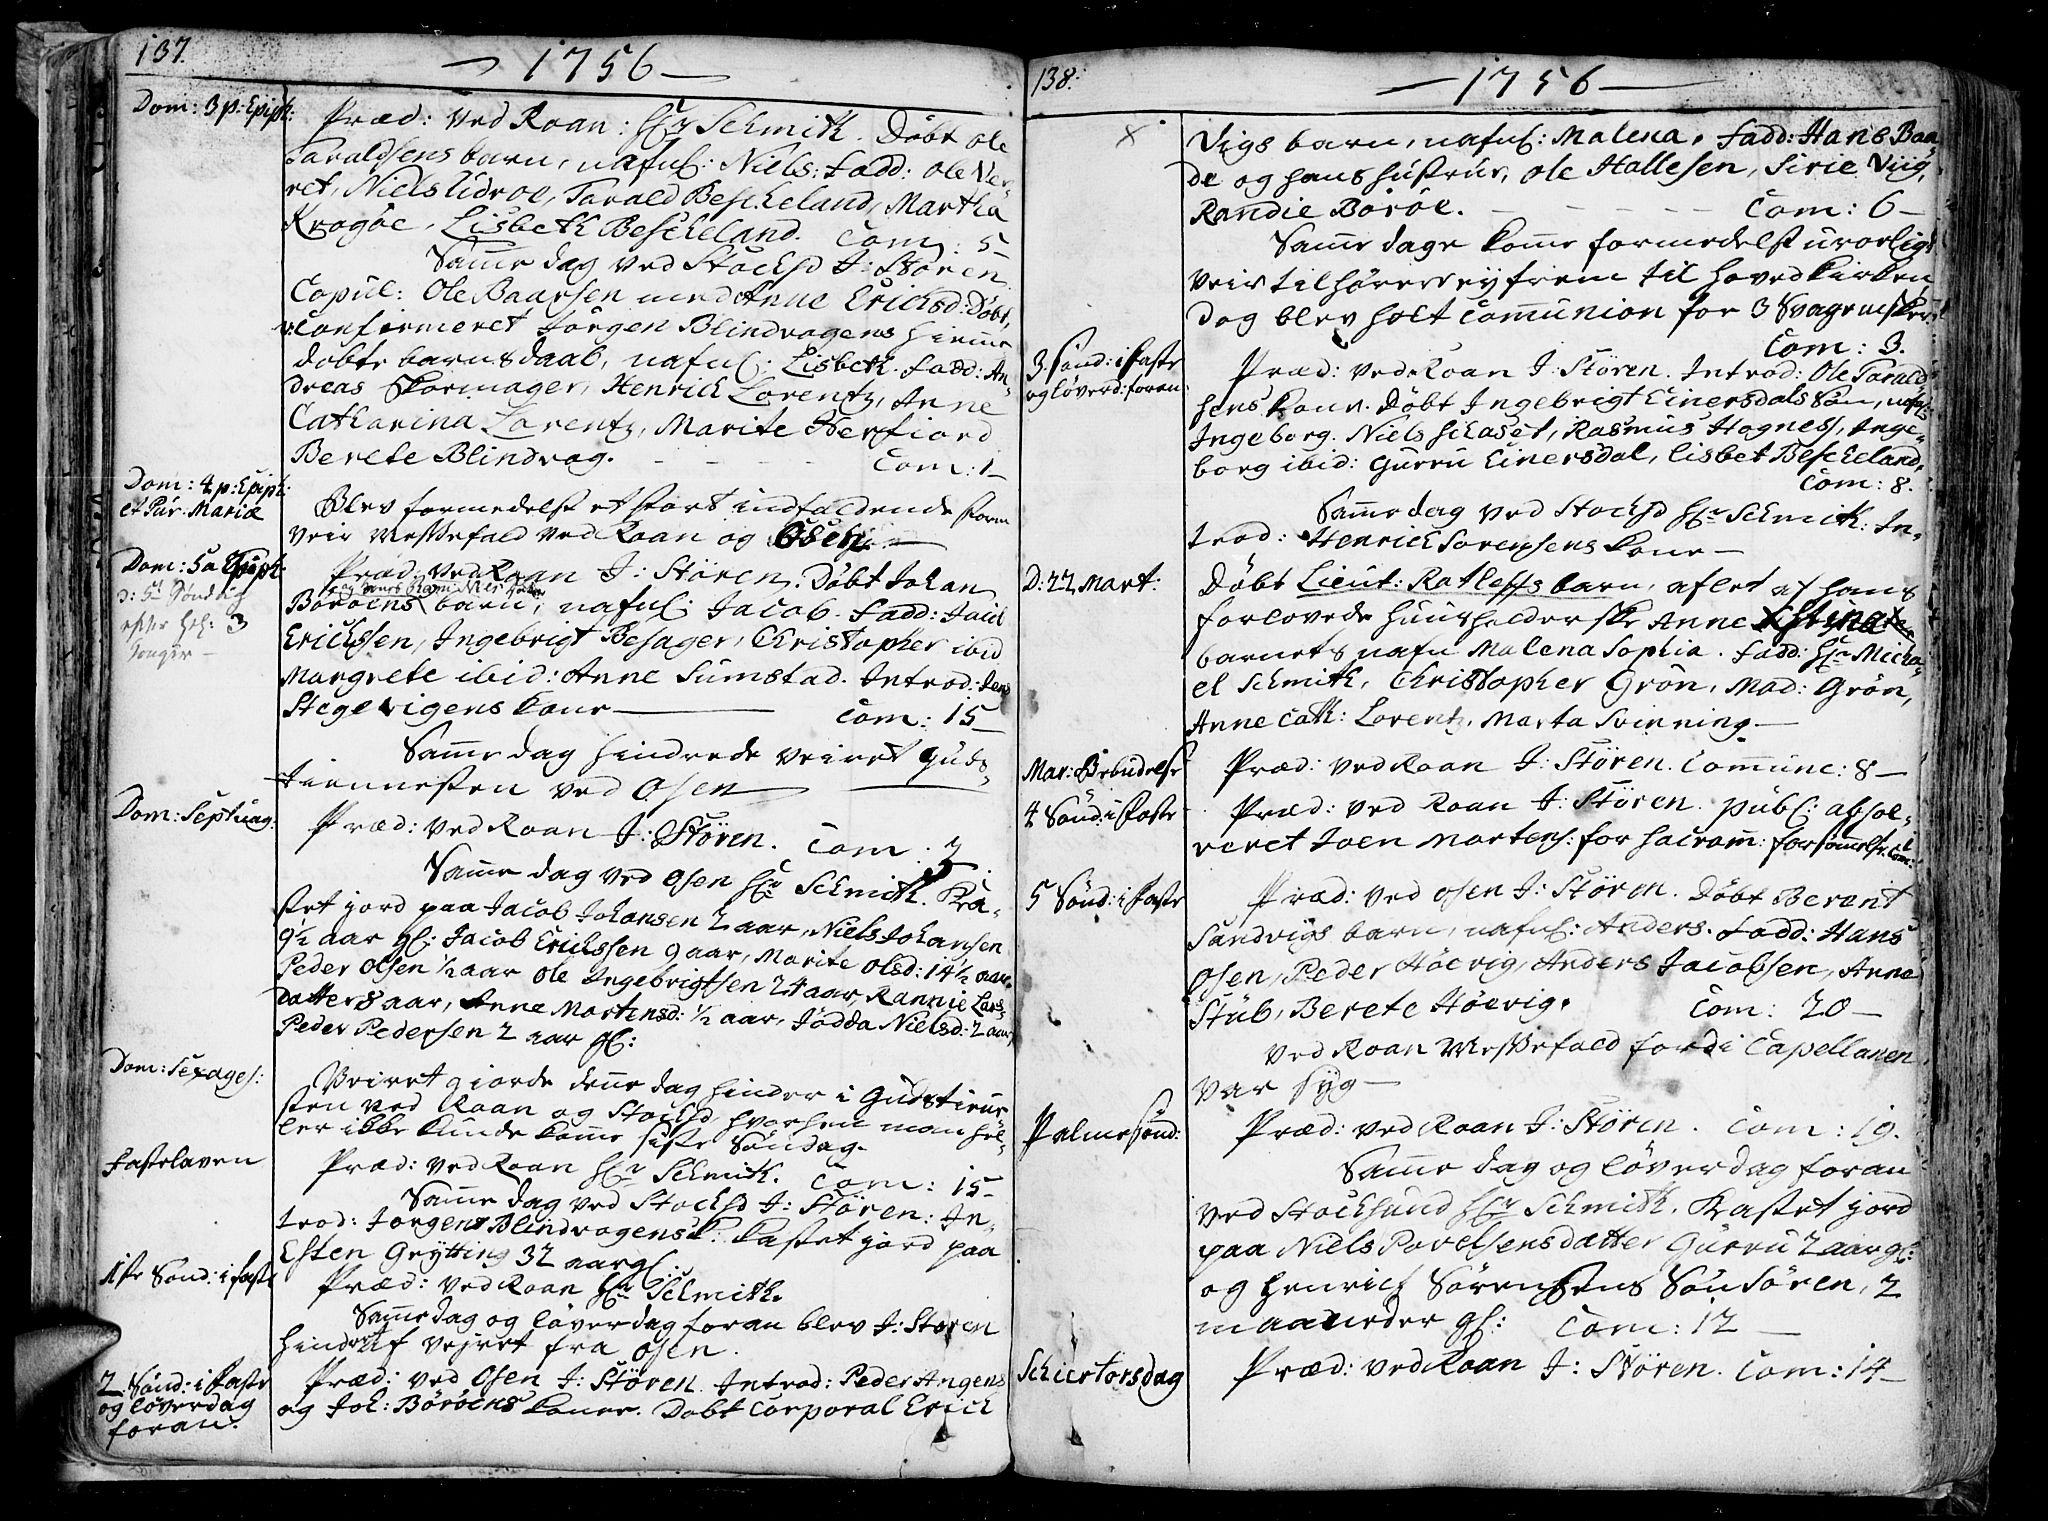 137.
— 1756 —
Dom: 3 p: Epiph:
Præd: ved Roan: Hr Schmith. Døbt ole
Taraldsens barn, nafnl: Niels: Fadd: ole Ver-
ret, Niels Udroe, Tarald Bescheland, Martha
Kragöe, Lisbeth Bescheland. Com: 5
Samme dag ved Stochsd J: Stören
Copul: Ole Baarsen med Anne Ericksd: Døbt,
confirmeret Jörgen Blindvagens hiemme
døbte barns daab, nafnl: Lisbeth. Fadd: An-
dreas Skormager, Henrich Lorentz, Anne
Catharina Lorentz, Marite Herfiord
Berete Blindvag. Com: 1
Dom: 4 p: Epiph:
et Pur. Mariæ
Blev formedelst et stort indfaldende storm
veir Messefald ved Roan og Osen
Dom: 5 a Epiph:
d: 5t Söndag
efter Hel: 3
Konger —
Præd: ved Roan J: Stören. Döbt Johan
Böröens barn, nafnl: Jacob. Fadd: Jacob
Erichssen, Ingebrigt Besager, Christopher ibid
Margrete ibid: Anne Sumstad. Introd: Jens
Stegevigens kone — Com: 15
Samme dag hindrede veiret Guds-
tiennesten ved Osen
Dom: Septuag:
Præd: ved Roan J: Stören. Com: 3
Samme dag ved Osen Hr Schmith. Ka-
stet jord paa Jacob Johansen 2 aar, Niels Johansen
9½ aar gl: Jacob Erichssen 9 aar, Marite Olsd: 14½ aar
Peder Olsen ½ aar Ole Ingebrigtsen 24 aar, Rannie Lars
Datter 8 aar, Anne Mortensd: ½ aar, Jödda Nielsd: 2 aar,
Peder Pedersen 2 aar gl:
Dom: Sexages:
Veiret giorde denne dag hinder i Gudstienne
sten ved Roan og Stochsd hvorhen man hel-
ler ikke kunde komme siste Søndag.
Fastelaven
Præd: ved Roan Hr Schmith. Com: 15
Samme dag ved Stochsd J: Stören: In-
trod: Jorgens Blindvagens K: Kastet jord paa
Esten Grÿtting 32 aar gl:
1ste Sönd: i Faste
Præd: ved Roan Hr Schmith.
Samme dag og löverdag foran blev J: Stören
hindret af vejret fra Osen.
2 Sönd: i Faste
og löverdag
foran.
Præd: ved Osen J: Stören. Introd: Peder Angens
og Joh: Böröens koner. Døbt Corporal Erich
138:
— 1756 —
Vigs barn, nafnl: Malena. Fadd: Hans Baa
de og hans hustrue, Ole Hallesen, Sirie Viig,
Randie Böröe. Com: 6
Samme dage komme formedelst uroligt
veir tilhörere ey frem til hovedkirken
dog blev holt Communion for 3 Svage nesker
Com: 3.
3 Sönd: i Faste
og löverd: foran
Præd: ved Roan J: Stören. Introd: Ole Tarald
sens kone. Døbt Ingebrigt Einersdals Søn, nafnl:
Ingeborg. Niels Schaset, Rasmus Hognes, Inge-
borg ibid: Gurru Einersdal, Lisbet Bescheland.
Com: 8.
Samme dag ved Stochsd Hr Schmith: In-
trod: Henrich Sorensens kone —
D: 22 Mart:
Døbt Lieut: Ratleffs barn, aflet af hans
forlovede Huusholderske Anne
barnets nafn Malena Sophia. Fadd: Hr Micha
el Schmith, Christopher Grön, Mad: Grön,
Anne Cath: Lorentz, Marta Svinning —
Mar: Bebudelse
Præd: ved Roan J: Stören. Commune: 8 —
4 Sönd: i Faste
Præd: ved Roan J: Stören. publ: absol-
veret Joen Mortens: for Sacram: forsömmelse. Com:
5 Sönd: i Faste
Præd: ved Osen J: Stören. Døbt Berent
Sandvigs barn, nafnl: Anders. Fadd: Hans
Osen, Peder Höevig, Anders Jacobsen, Anne
Stub, Berete Höevig. Com: 20 —
Ved Roan Messefald fordi Capellanen
var syg —
Palmesönd:
Præd: ved Roan J: Stören. Com: 19.
Samme dag og löverdag foran
ved Stochsund Hr Schmith. Kastet jord
paa Niels Povelsens datter Gurru 2 aar gl:
og Henrich Sörensens Sön Sören, 2
maaneder gl: Com: 12 —
Schiertorsdag
Præd: ved Roan J: Stören. Com: 14 —